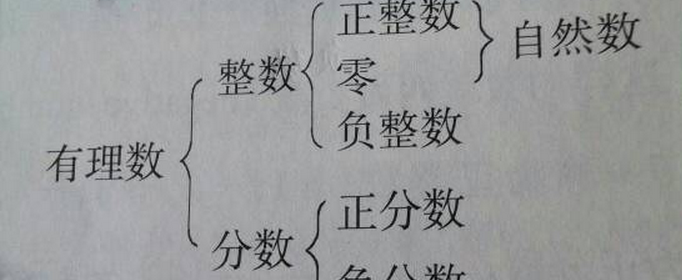 正整数
自然数
整数
零
负整数
有理数
正分数
分数
负分数